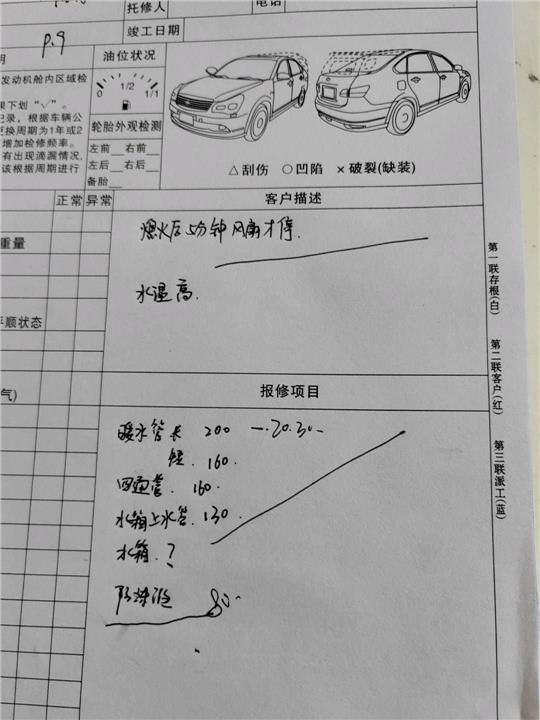 托修人
电话
竣工日期
P.9
油位状况
发动机舱内区域检
0 1/2 1/1
果下划“√”。
记录,根据车辆公
更换周期为1年或2
增加检修频率。
有出现滴漏情况,
该根据周期进行
轮胎外观检测
左前__右前__
左后__右后__
备胎__
△刮伤 ○凹陷 ×破裂(缺装)
正常 异常
客户描述
熄火后5分钟风扇才停.
水温高.
重量
平顺状态
气)
报修项目
暖水管长 200
短. 160.
四通管. 160.
水箱上水管. 130
水箱.?
防冻液 80
第一联存根(白)
第二联客户(红)
第三联派工(蓝)